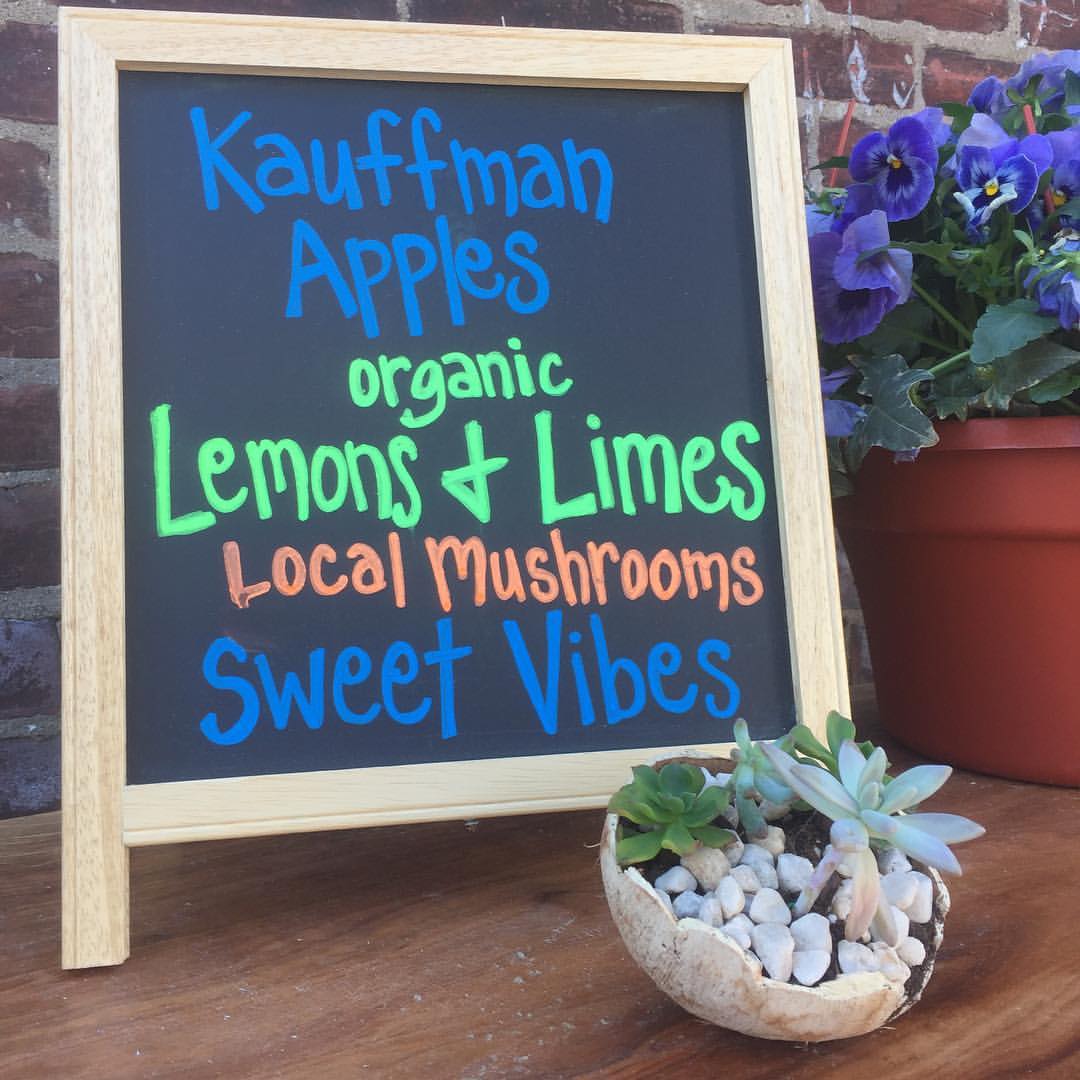 Kauffman
Apples
organic
Lemons + Limes
Local Mushrooms
Sweet Vibes